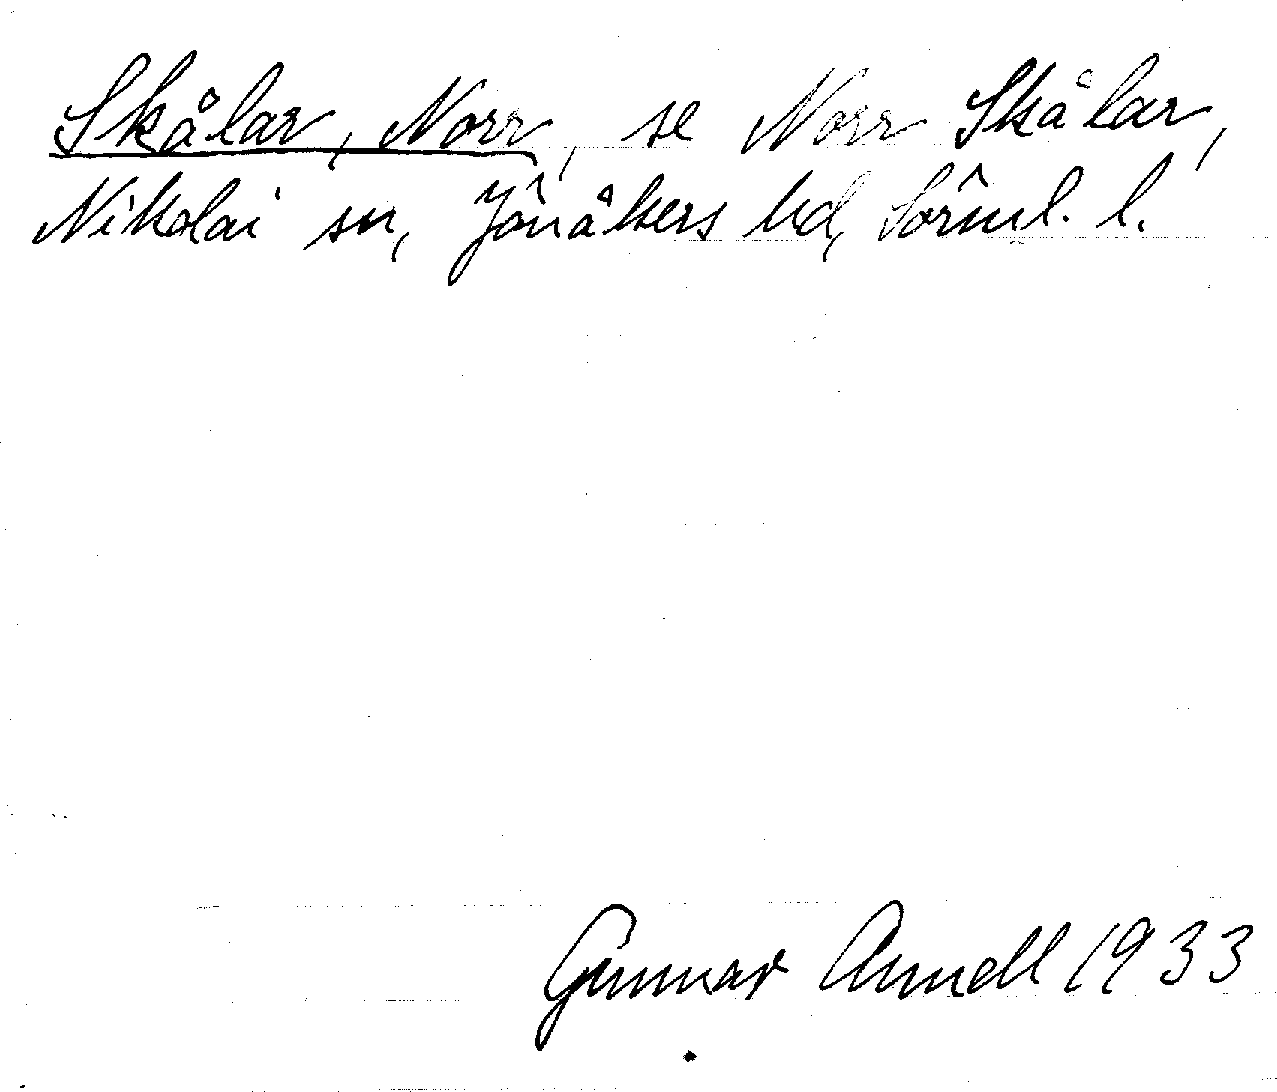 Skålar, Norr, se Norr Skålar,
Nikolai sn, Jönåkers hd, Sörml. l.
Gunnar Arnell 1933